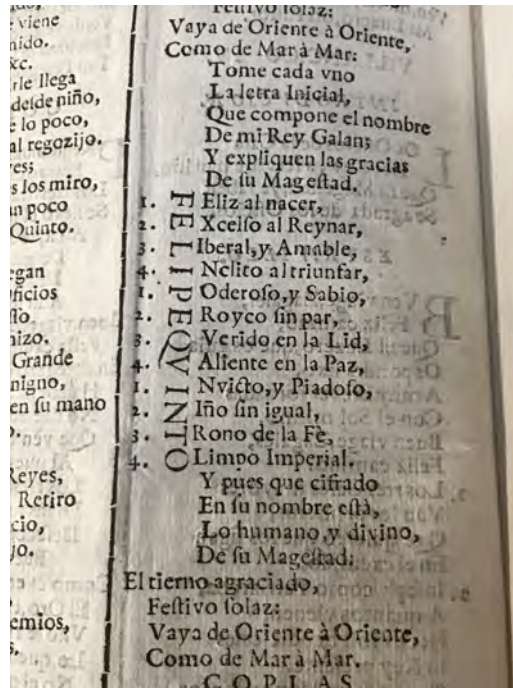 viene
nido.
xc.
rle llega
deſde niño,
e lo poco,
al regozijo.
es;
s los miro,
un poco
Quinto.
gan
ficios
ſto,
nizo.
Grande
nigno,
en ſu mano
Reyes,
Retiro
cio,
jo.
emios,
s.
Feſtivo ſolaz:
Vaya de Oriente à Oriente,
Como de Mar à Mar:
Tome cada vno
La letra Inicial,
Que compone el nombre
De mi Rey Galan;
Y expliquen las gracias
De ſu Mageſtad.
1. FEliz al nacer,
2. EXcelſo al Reynar,
3. LIberal, y Amable,
4. INclito al triunfar,
1. POderoſo, y Sabio,
2. ERoyco ſin par,
3. QVerido en la Lid,
4. VAliente en la Paz,
1. INvicto, y Piadoſo,
2. NIño ſin igual,
3. TRono de la Fè,
4. OLimpo Imperial.
Y pues que cifrado
En ſu nombre eſtà,
Lo humano, y divino,
De ſu Mageſtad:
El tierno agraciado,
Feſtivo ſolaz:
Vaya de Oriente à Oriente,
Como de Mar à Mar.
COPLAS